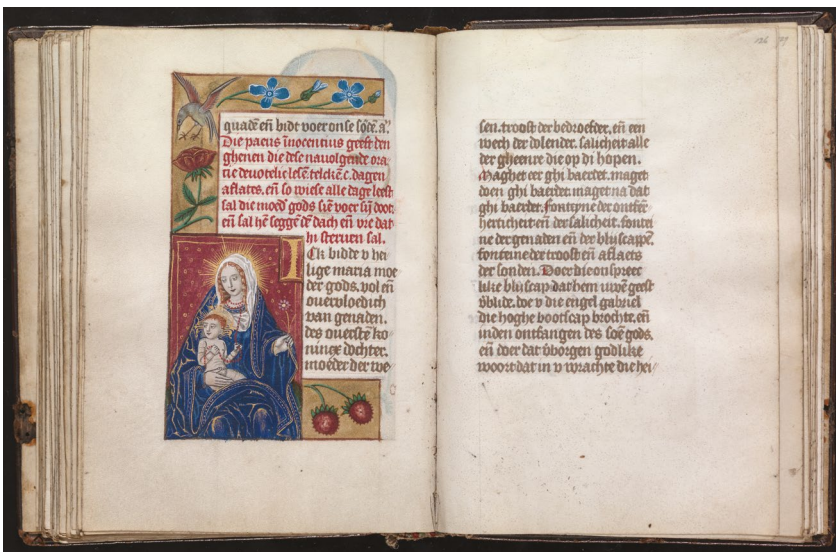 quadē eñ bidt voer onse sōdē. aͫ.
Die paeus īnocentius geeft den
ghenen die dese nauolgende ora
cie deuotelic lesē. telckē c. dagen
aflates. eñ so wie se alle dage leest
sal die moed' gods siē voer sij doot
eñ sal hē seggē dē dach eñ vre dat
hi steruen sal.
ICk bidde v hei
lige maria moe
der gods. vol eñ
ouervloedich
van genaden.
des ouerstē ko
nincx dochter.
moeder der we
126
sen. troost der bedroefder. eñ een
wech der dolender. salicheit alle
der gheenre die op di hopen.
Maghet eer ghi baerdet. maget
doen ghi baerdet. maget na dat
ghi baerdet. fonteyne der ontfer
herticheit eñ der salicheit. fontei
ne der genaden eñ der bliscappē.
fonteine der troost eñ aflaets
der sonden. Doer die onspreec
like bliscap dat hem uwē geest
v̄blide. doe v die engel gabriel
die hoghe bootscap brochte. eñ
inden ontfangen des soē gods.
eñ doer dat v̄borgen godlike
woort dat in v wrachte die hei